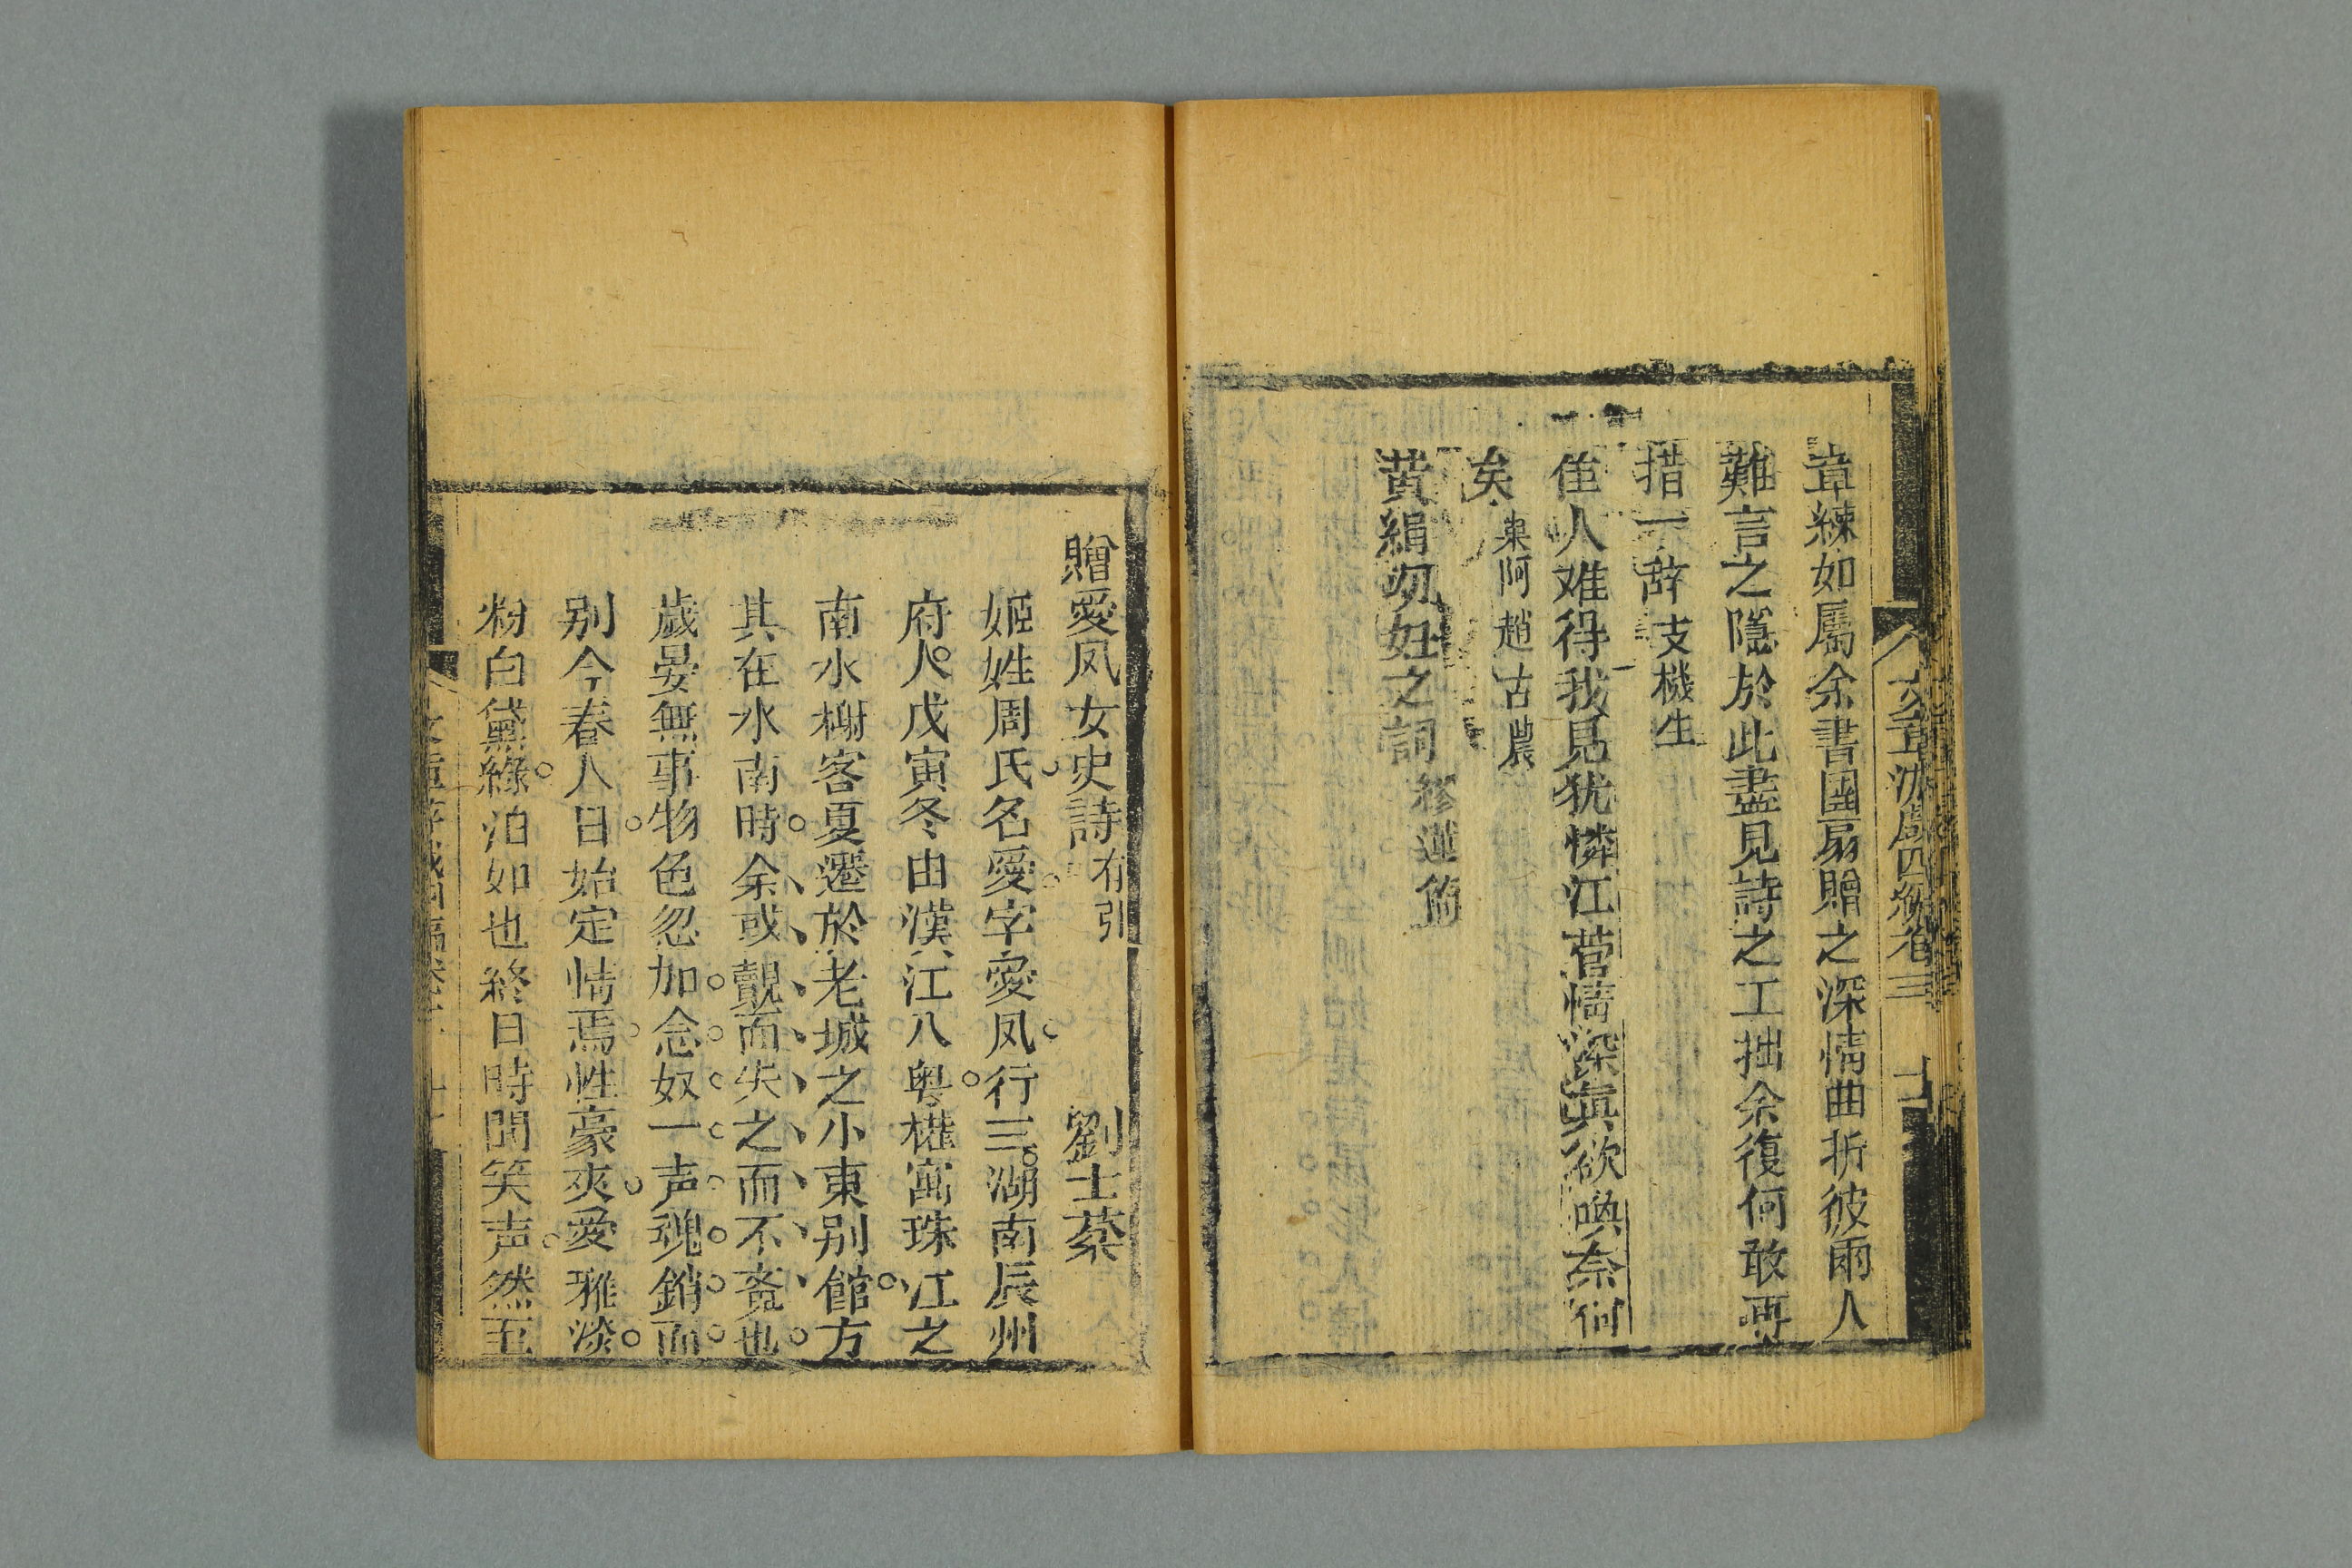 章練如屬余書團扇贈之深情曲折彼兩人
難言之隱於此盡見詩之工拙余復何敢再
措一辞 支機生
佳人难得我見犹憐江菅情深真欲喚奈何
矣 東阿趙古農
黄絹㓜妇之詞 繆蓮僊
贈愛凤女史詩 有引 劉士菜
姬姓周氏名愛字愛凤行三湖南辰州
府人戊寅冬由漢江八粤櫂寓珠江之
南水榭客夏遷於老城之小東别館方
其在水南時余或覿而失之而不吝也
歳晏無事物色忽加念奴一声魂銷而
别今春人日始定情焉性豪爽愛雅淡
粉白黛綠泊如也終日時聞笑声然五